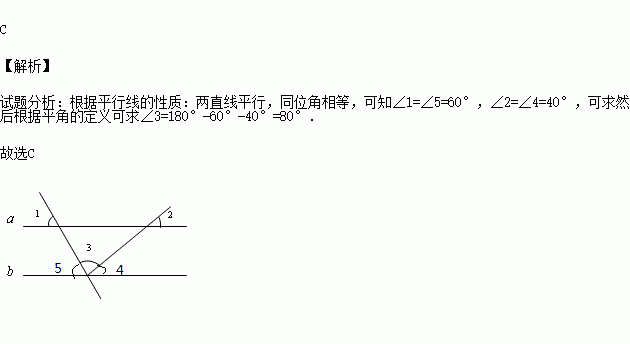 C
【解析】
试题分析：根据平行线的性质：两直线平行，同位角相等，可知∠1=∠5=60°，∠2=∠4=40°，可求然
后根据平角的定义可求∠3=180°-60°-40°=80°.
故选C
a 1 2
3
b 5 4